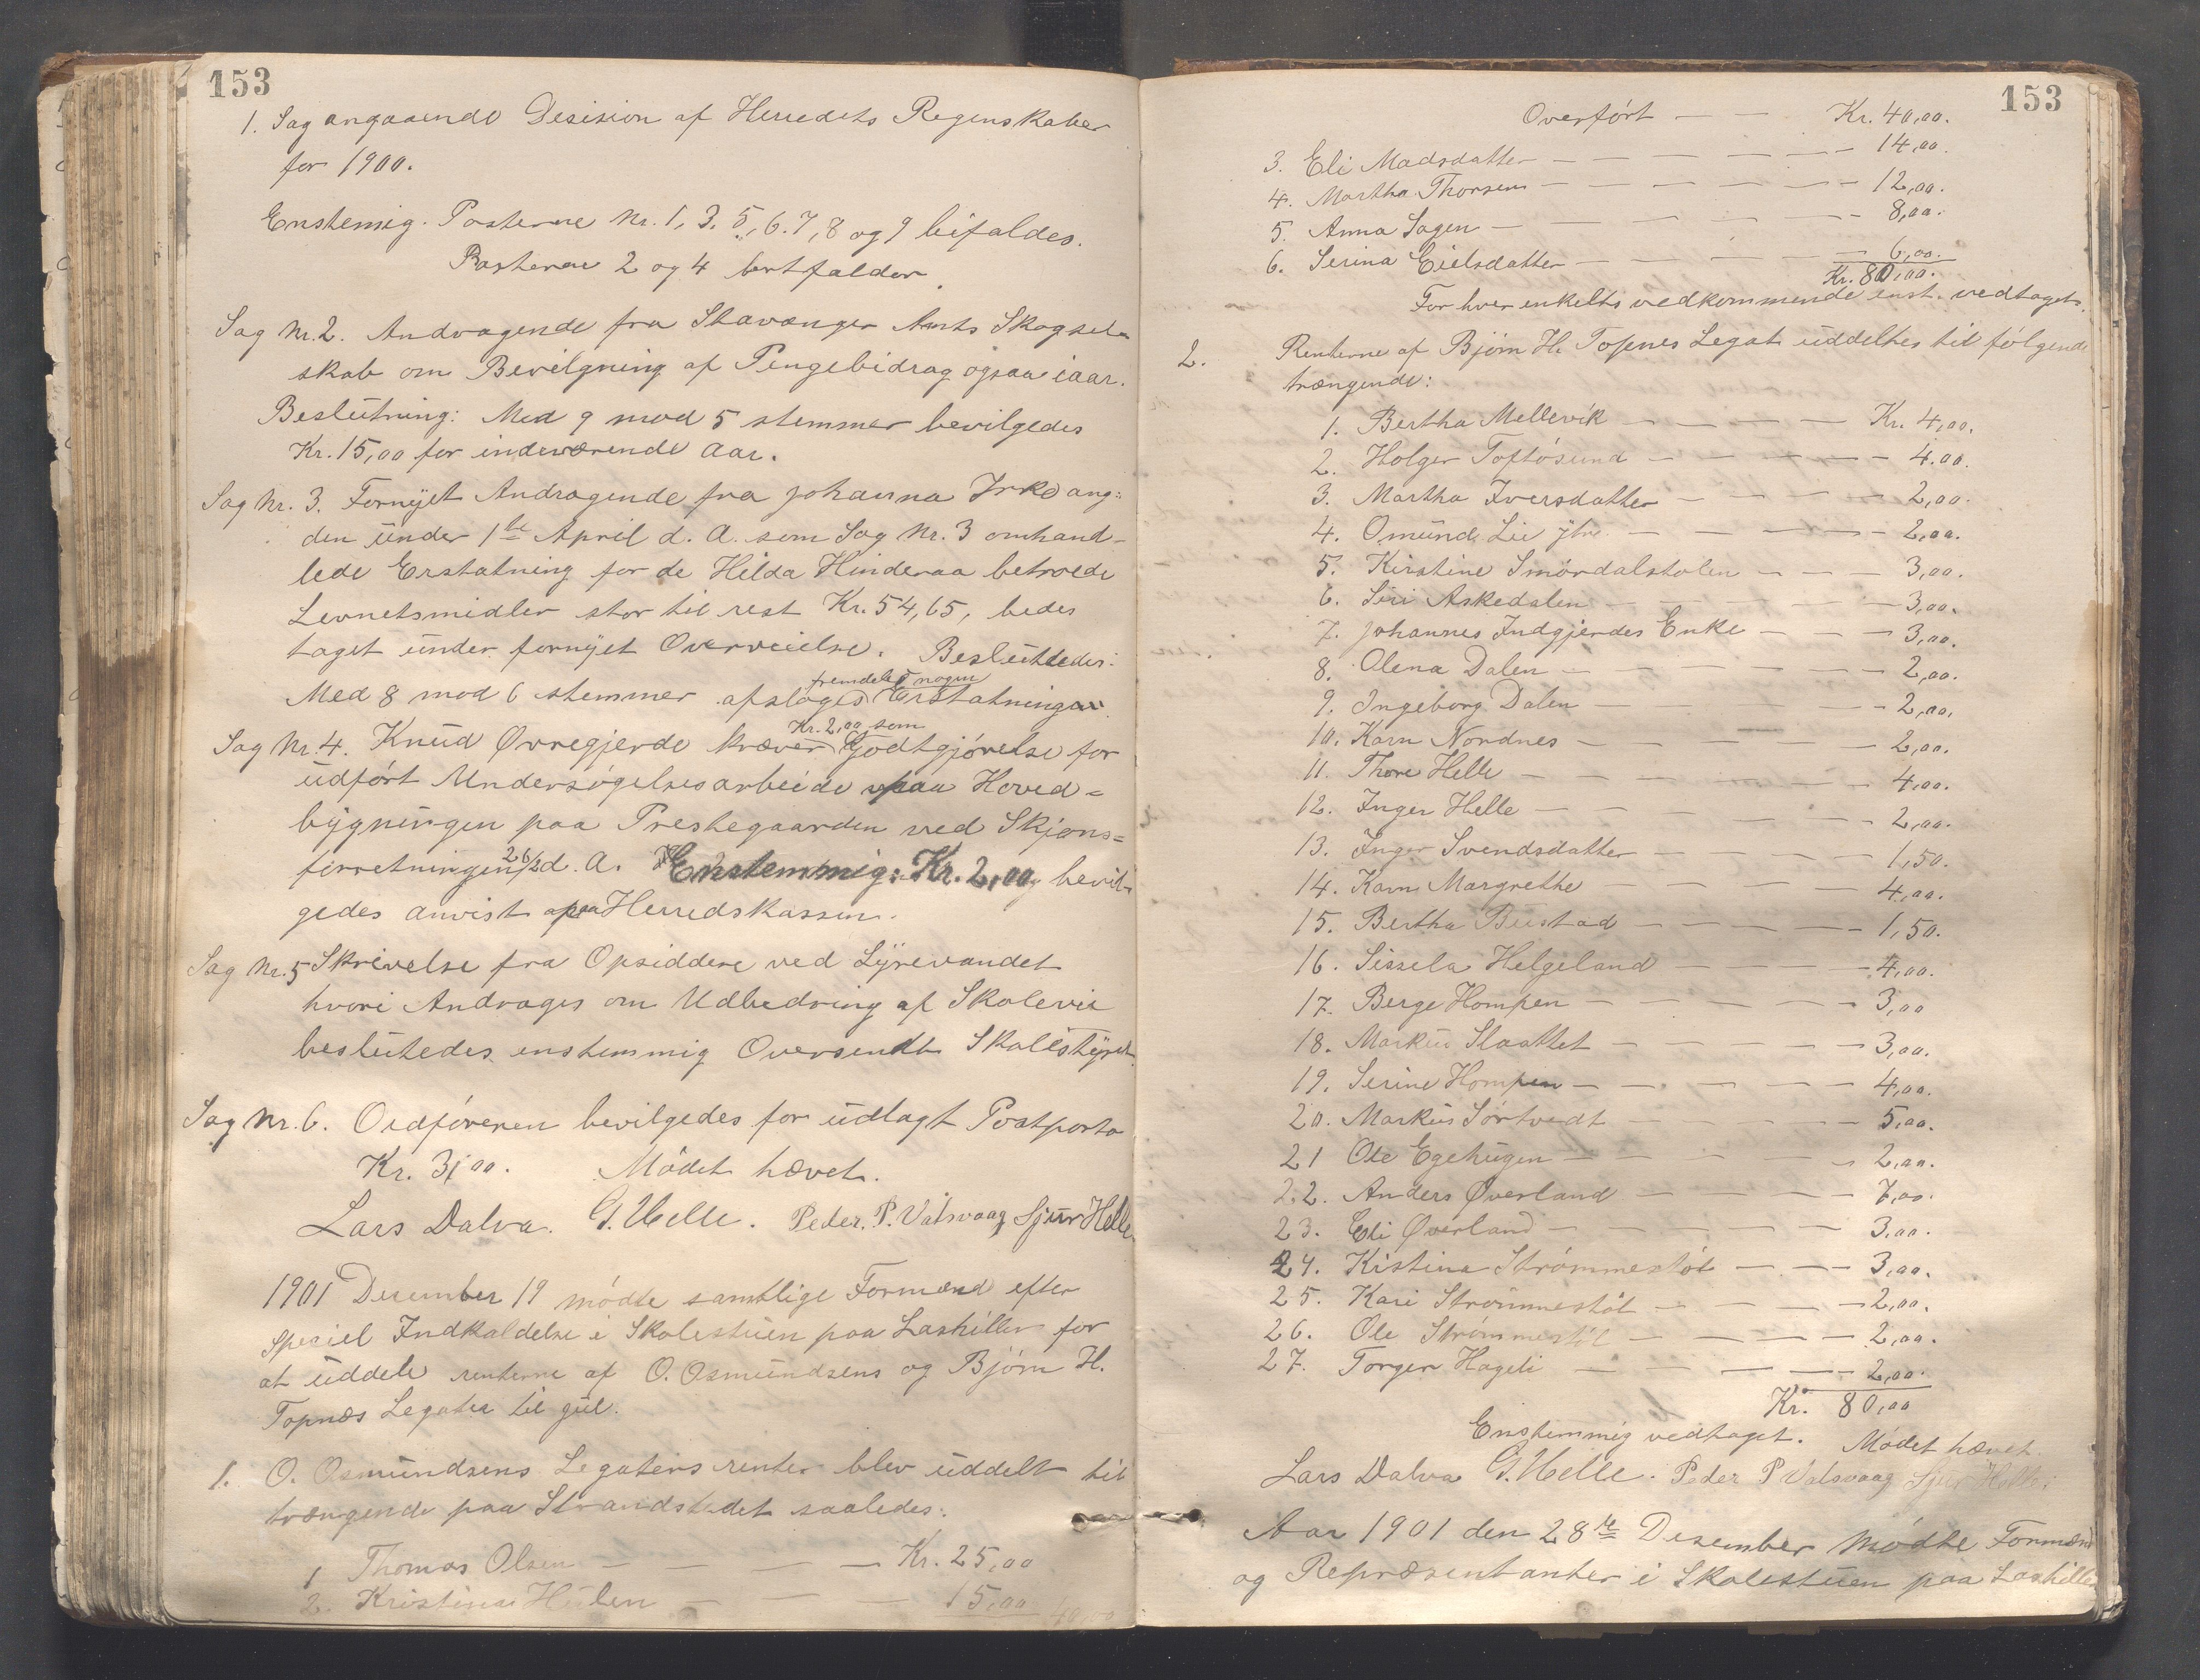 153
1. Sag angaaende Desision af Herredets Regnskaber
for 1900.
Enstemig. Posterne Nr. 1, 3. 5, 6. 7, 8 og 9 bifaldes.
Posterne 2 og 4 bortfalder.
Sag Nr. 2. Andragende fra Stavanger Amts Skogsel-
skab om Bevilgning af Pengebidrag ogsaa iaar.
Beslutning: Med 9 mod 5 stemmer bevilgedes
Kr. 15,00 for indeværende Aar.
Sag Nr. 3. Fornyet Andragende fra Johanna Irke ang:
den under 1ste April d. A. som Sag Nr. 3 omhand-
lede Erstatning for de Hilda Hinderaa betroede
Levnetsmidler stor til rest Kr. 54,65, bedes
taget under fornyet Overveielse. Besluttedes:
Med 8 mod 6 stemmer afsloges fremdeles nogen Erstatning
Sag Nr. 4. Knud Øvregjerde kræver Kr. 2,00 som Godtgjørelse for
udført Undersøgelsesarbeide paa Hoved=
bygningen paa Prestegaarden ved Skjøns=
forretningen 26/2 d. A. Enstemmig: Kr. 2,00 bevil-
gedes anvist paa Herredskassen.
Sag Nr. 5 Skrivelse fra Opsiddere ved Lyrevandet
hvori Andrages om Udbedring af Skolevei
besluttedes enstemmig Oversendt Skolestyret
Sag Nr. 6. Ordføreren bevilgedes for udlagt Postporto
Kr. 3,00. Mødet hævet.
Lars Dalva. G. Helle. Peder. P. Vatsvaag Sjur Helle
1901 Desember 19 mødte samtlige Formænd efter
Speciel Indkaldelse i Skolestuen paa Laskillen for
at uddele renterne af O. Osmundsens og Bjørn H.
Topnæs Legater til jul.
1. O. Osmundsens Legaters renter blev uddelt til
trængende paa Strandstedet saaledes:
1 Thomas Olsen — — — — Kr. 25,00
2. Kristina Hülen — — — 15,00 40,00
153
Overført — — Kr. 40,00.
3. Eli Madsdatter — — — — — 14,00.
4. Martha Thorsen — — — — — 12,00.
5. Anna Sagen — — — — — 8,00.
6. Serina Eielsdatter — — — — 6,00.
Kr. 80,00.
For hver enkelts vedkommende enst. vedtaget.
2. Renterne af Bjørn H. Topnes Legat uddeltes til følgende
trængende:
1. Bertha Mellevik — — — — Kr. 4,00.
2. Holger Toftøsund — — — — 4.00.
3. Martha Iversdatter — — — — 2,00.
4. Omund Lie ytre — — — — 2,00.
5. Kirstine Smørdalstølen — — — 3,00.
6. Siri Askedalen — — — — 3,00.
7. Johannes Indgjerdes Enke — — — 3,00.
8. Olena Dalen — — — — 2,00.
9. Ingeborg Dalen — — — — 2,00.
10. Karn Nordnes — — — — 2,00.
11. Thore Helle — — — — 4,00.
12. Inger Helle — — — — 2,00.
13. Inger Svendsdatter — — — — 1,50.
14. Karn Margrethe — — — — 4,00.
15. Bertha Bustad — — — — 1,50.
16. Sissela Helgeland — — — — 4,00.
17. Berge Hompen — — — — 3,00
18. Markus Slaattet — — — — 3,00.
19. Serine Hompen — — — — 4,00.
20. Markus Sørtvedt — — — — 5,00.
21 Ole Egehugen — — — — 2,00.
22. Anders Øverland — — — — 7,00.
23. Eli Øverland — — — — 3,00.
24. Kistina Strømmestøl — — — 3,00.
25. Kari Strømmestøl — — — — 2,00.
26. Ole Strømmestøl — — — — 2,00.
27. Torger Hageli — — — — 2,00.
Kr. 80,00
Enstemmig vedtaget. Mødet hævet.
Lars Dalva G. Helle. Peder P Vatsvaag Sjur Helle.
Aar 1901 den 28de Desember Mødte Formænd
og Repræsentanter i Skolestuen paa Laskillen